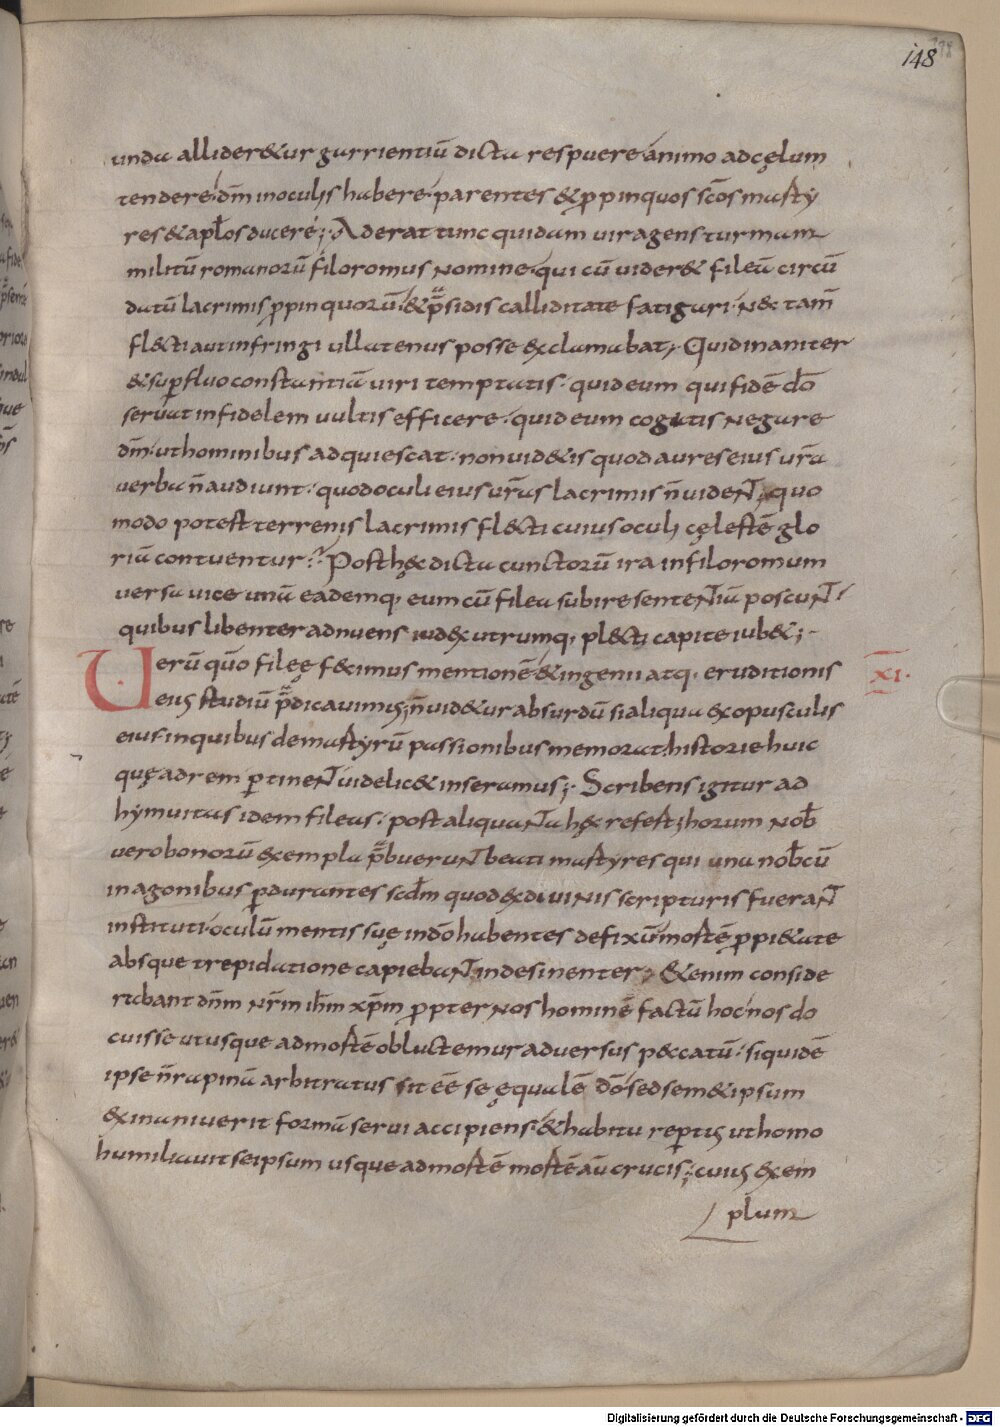 148
unda allider&ur garrientiū dicta respuere animo adcęlum
tendere· dm̄ inoculis habere· parentes & ꝓpinquos scōs marty
res & aplōs ducere; Aderat tunc quidam vir agens turmam
militū romanorū filoromus nomine· qui cū vider& fileā circū
datū lacrimis ꝓpinquorū· & p̄sidis calliditate fatigari· n& tam̄
fl&ti aut infringi ullatenus posse exclamabat; Quid inaniter
& suꝑfluo constantiā viri temptatis· quid eum qui fidē dō
seruat infidelem vultis efficere· quid eum cogitis negare
dm̄· ut hominibus adquiescat· non uid&is quod aures eius urā
uerba n̄ audiunt· quod oculi eius urās lacrimis n̄ uident; quo
modo potest terrenis lacrimis fl&ti cuius oculi cęlestē glo
riā contuentur? Post hęc dicta cunctorū ira in filoromum
uersa uice unā eademq; eum cū filea subire sententiā poscunt·
quibus libenter adnuens iudex utrumq; pl&ti capite iub&;
Uerū quō fileę fecimus mentionē & ingenii atq; eruditionis
XI·
eius studiū p̄dicauimus; n̄ uid&ur absurdū si aliqua ex opusculis
eius in quibus de martyrū passionibus memorat· historie huic
quę ad rem ꝑtinent uidelic& inseramus; Scribens igitur ad
hymuitas idem fileas· post aliquanta hęc refert; horum nob̄
uero bonorū exempla p̄buerunt beati martyres qui una nob̄cū
in agonibus ꝑdurantes scdm̄ quod ex diuinis scripturis fuerant
instituti· oculū mentis suę in dō habentes defixū· mortē ꝓ pi&ate
absque trepidatione capiebant indesinenter; &enim conside
rabant dnm̄ nrm̄ ihm̄ xpm̄ ꝓpter nos hominē factū hoc nos do
cuisse ut usque ad mortē obluctemur aduersus peccatū· siquidē
ipse n̄ rapinā arbitratus sit eē se ęqualē dō· sed sem&ipsum
exinaniuerit formā serui accipiens· & habitu reꝑtus ut homo
humiliauit seipsum usque ad mortē mortē aū crucis; cuius exem
plum
Digitalisierung gefördert durch die Deutsche Forschungsgemeinschaft - DFG